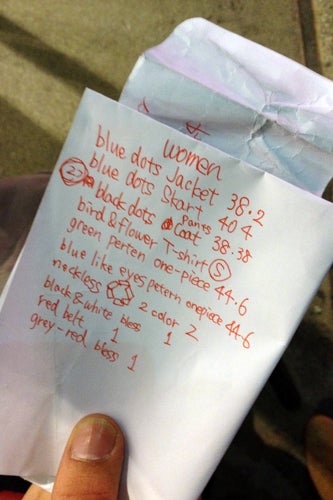 women
blue dots Jacket 38.2
blue dots Skart 40 4
black dots Coat 38.38
Panes
bird & flower T-shirt S
green perten one-piece 44.6
blue like eyes petern onepiece 44-6
neckless 2 color 2
black & white bless 1
red belt 1
grey-red bless 1